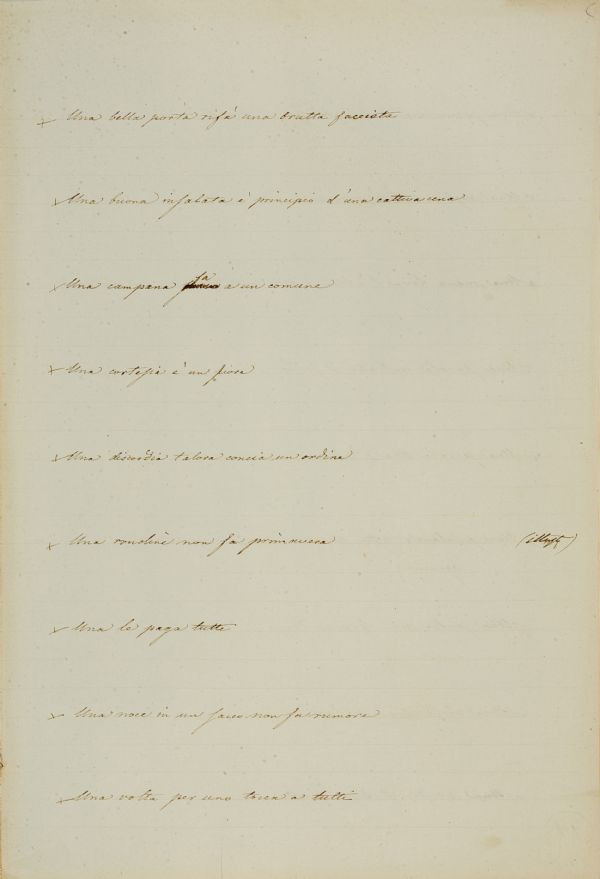 Una bella porta rifà una brutta facciata
Una buona insalata è principio d'una cattiva cena
Una campana fa a un comune
Una cortesia è un fiore
Una discordia talora concia un ordine
Una rondine non fa primavera (illustr)
Una le paga tutte
Una noce in un sacco non fa rumore
Una volta per uno tocca a tutti